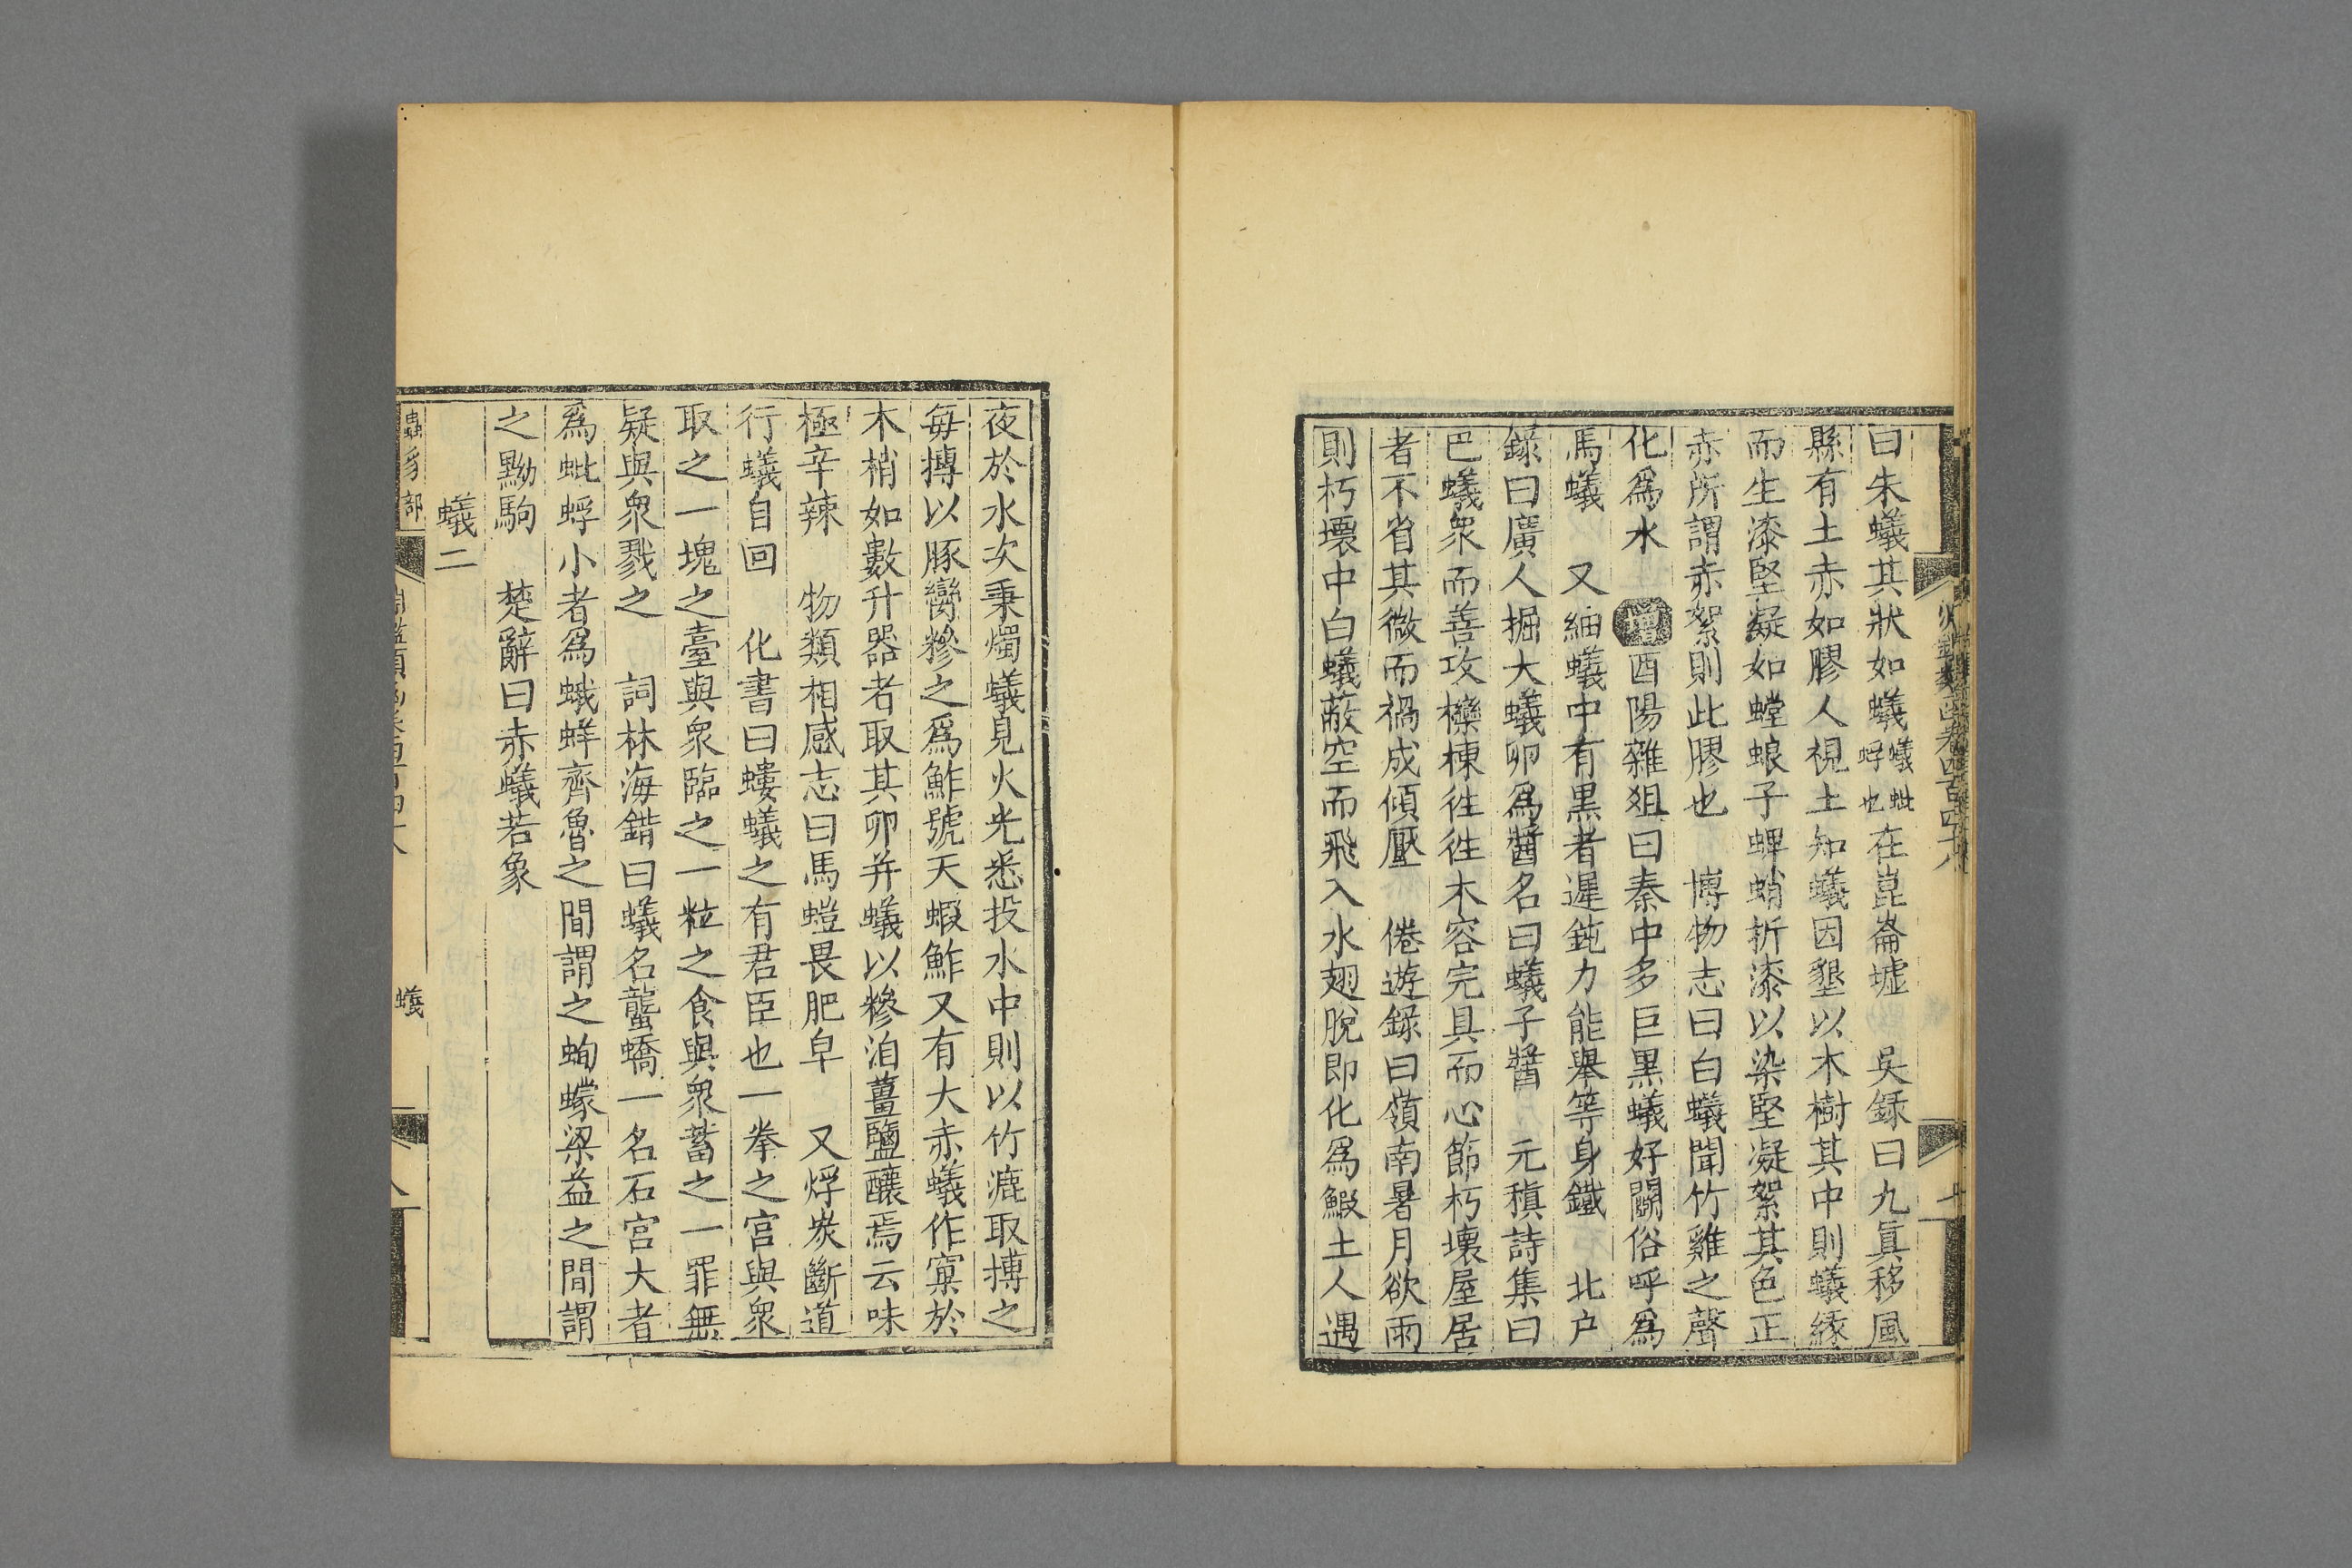 曰朱蟻其狀如蟻蟻蚍蜉也在崑崙墟　吳録曰九眞移風
縣有土赤如膠人視土知蟻因墾以木樹其中則蟻縁
而生漆堅凝如螳蜋子蜱蛸折漆以染堅凝絮其色正
赤所謂赤絮則此膠也　博物志曰白蟻聞竹雞之聲
化爲水　增酉陽雜俎曰秦中多巨黑蟻好鬭俗呼爲
馬蟻　又細蟻中有黑者遲鈍力能舉等身鐵　北户
録曰廣人掘大蟻卵爲醬名曰蟻子醬　元稹詩集曰
巴蟻衆而善攻欂棟徃徃木容完具而心節朽壞屋居
者不省其微而禍成傾壓　倦遊録曰嶺南暑月欲雨
則朽壞中白蟻蔽空而飛入水翅脫即化爲鰕土人遇
夜於水次秉燭蟻見火光悉投水中則以竹漉取摶之
每摶以豚臠糝之爲鮓號天蝦鮓又有大赤蟻作窠於
木梢如數升器者取其卵并蟻以糝洎薑鹽釀焉云味
極辛辣　物類相感志曰馬螘畏肥皁　又烰炭斷道
行蟻自回　化書曰螻蟻之有君臣也一拳之宮與衆
取之一塊之臺與衆臨之一粒之食與衆蓄之一罪無
疑與衆戮之　詞林海錯曰蟻名蠪蟜一名石宮大者
爲蚍蜉小者爲蛾蛘齊魯之間謂之蚼蠓梁益之間謂
之黝駒　楚辭曰赤蟻若象
蟻二
蟲豸部
蟻